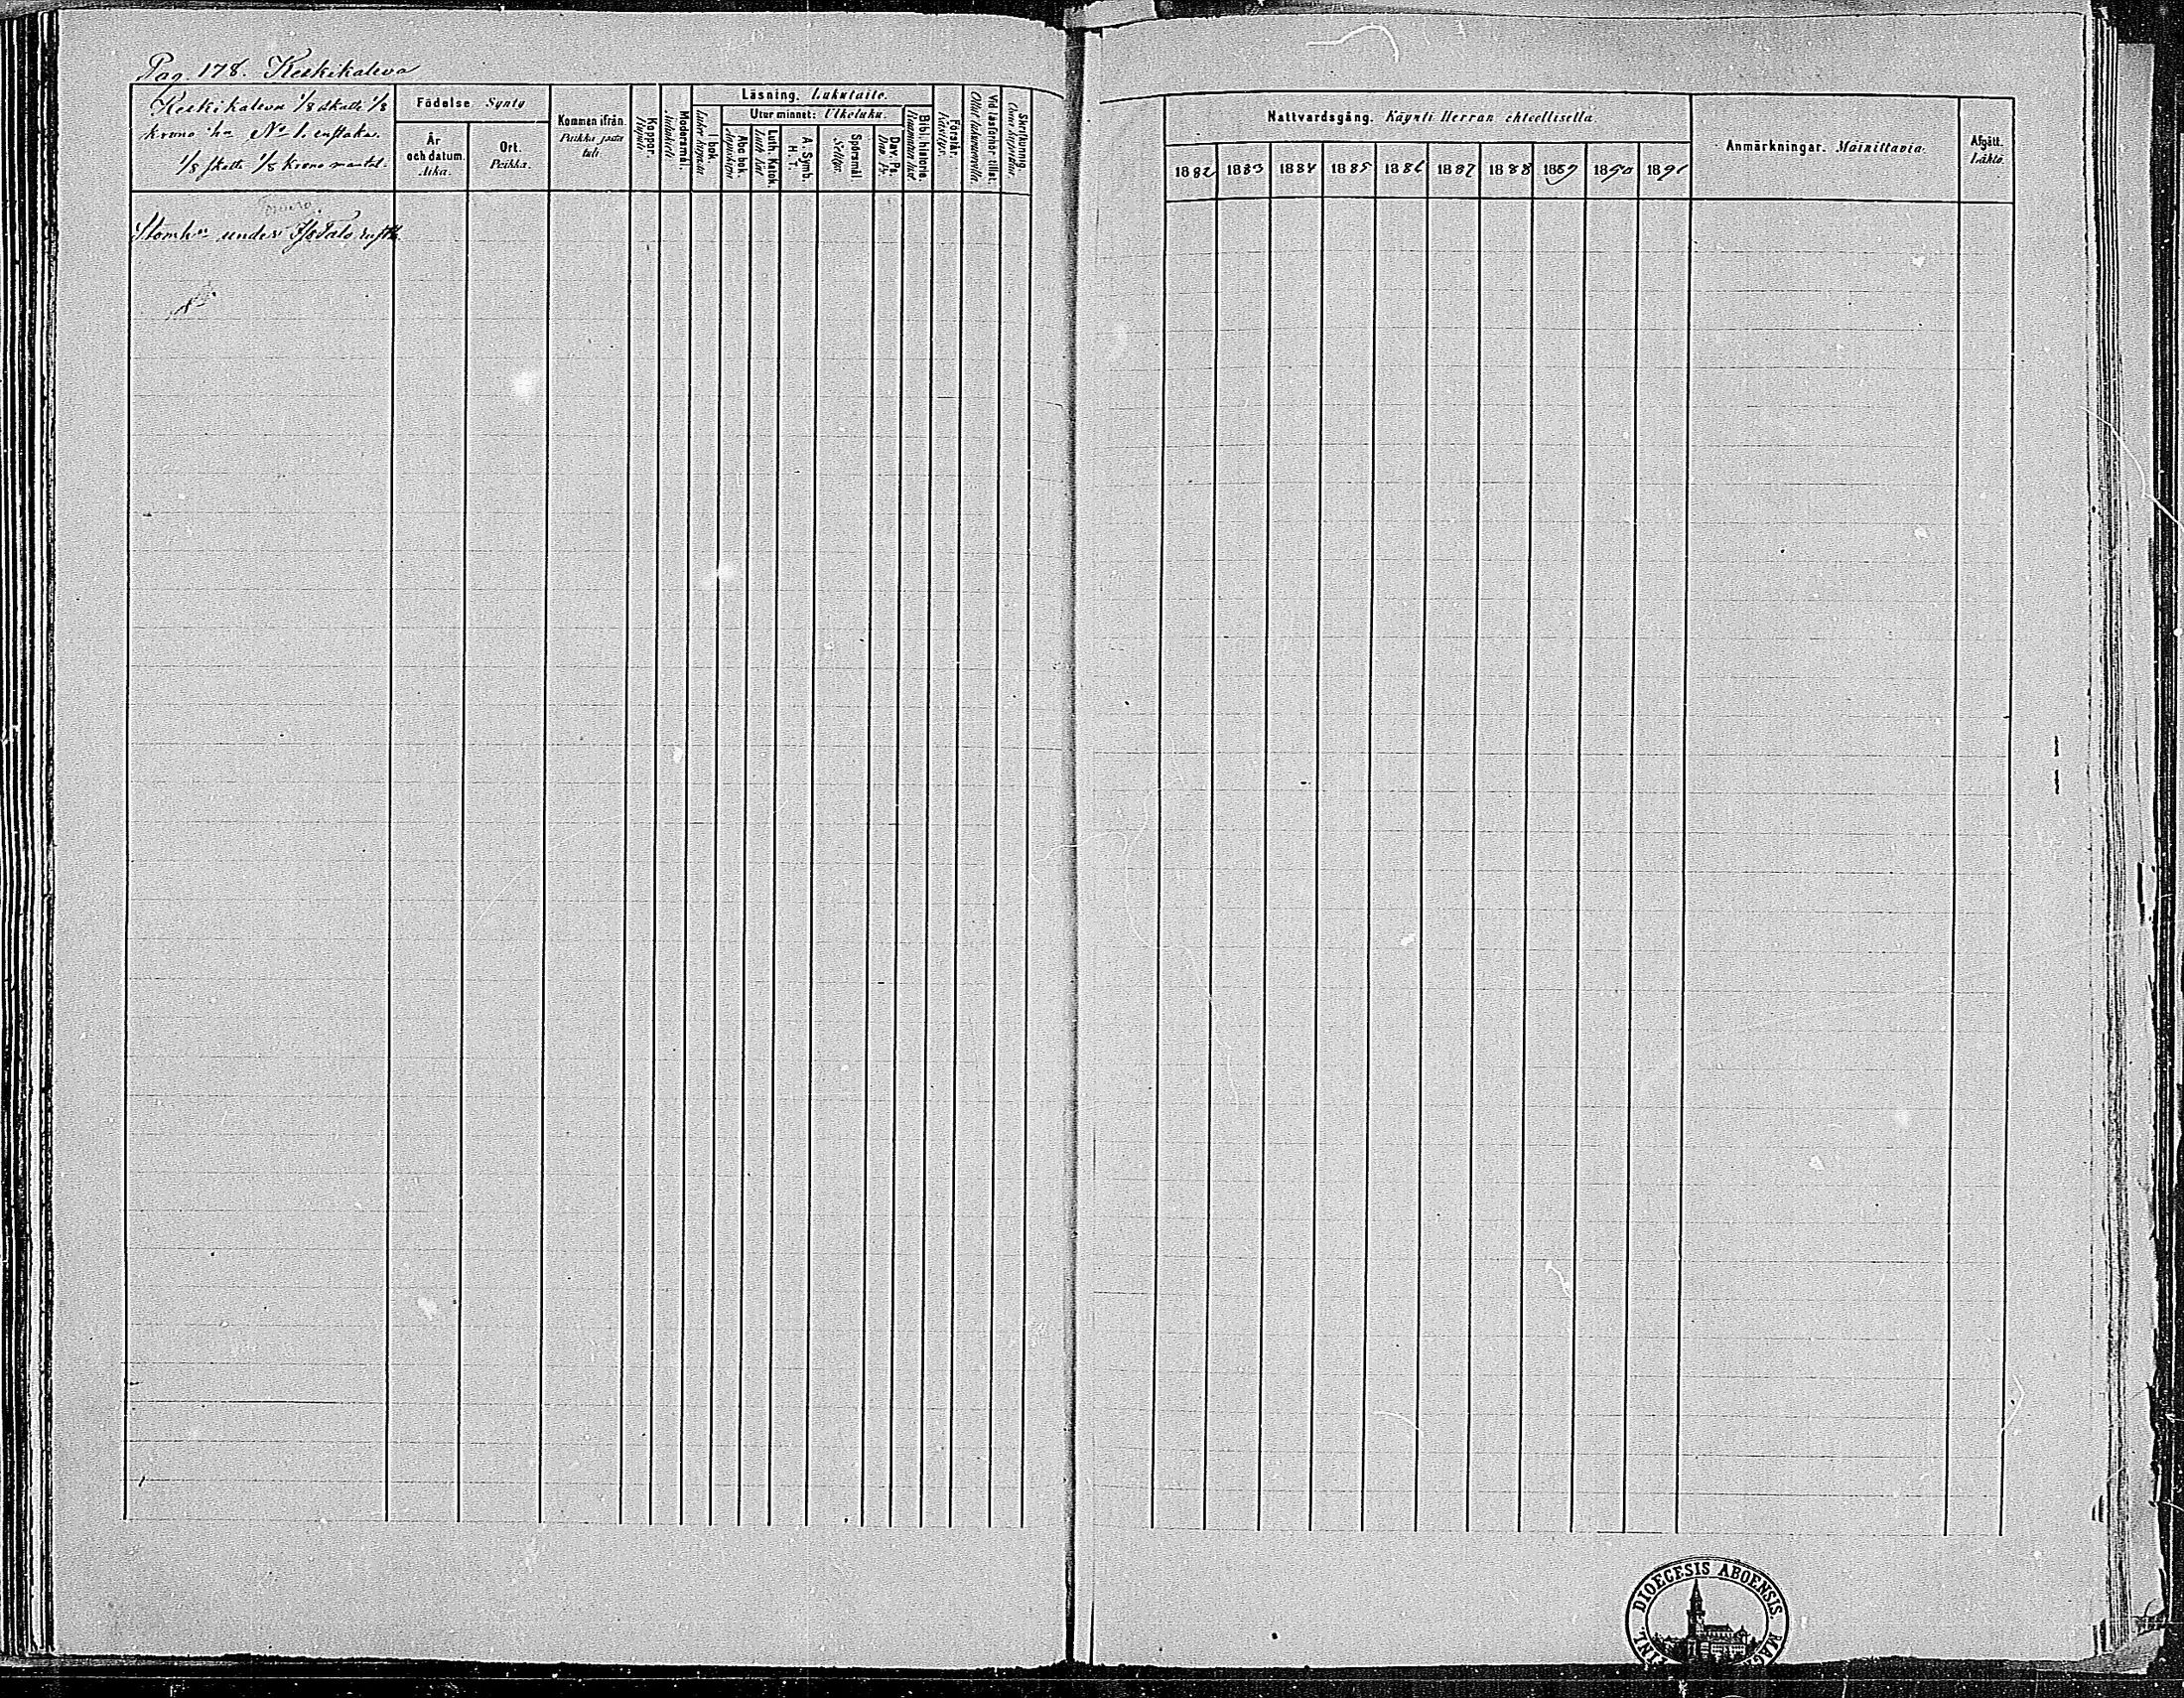 Pag. 178. Keskikaleva
Keskikaleva 1/8 skatte 1/8
krono hn No 1.
1/8 skatte 1/8 krono mantal.
Födelse Synty
År och datum. Aika.
Ort. Paikka.
Kommen ifrån. Paikka josta tuli
Koppor. Rupuli
Modersmål. Äidinkieli
Läsning. Lukutaito.
Luther. bok.
Utur minnet: Ulkoluku.
Abc bok. Aapiskirja
Luth. Katek.
A. Symb. H. T.
Spörsmål. Selitys.
Dav. Ps. Dav. Ps.
Bibl. historia.
Förstår. Käsitys.
Vid läsförhör tillst. Ollut lukuluvuilla.
Skriftkunnig.
Stomhn under IsoTalo
Nattvardsgång. Käynti Herran ehtoollisella
1882 1883 1884 1885 1886 1887 1888 1889 1890 1891
Anmärkningar. Mainittavia.
Afgått. Lähtö.
DIOECESIS ABOENSIS.